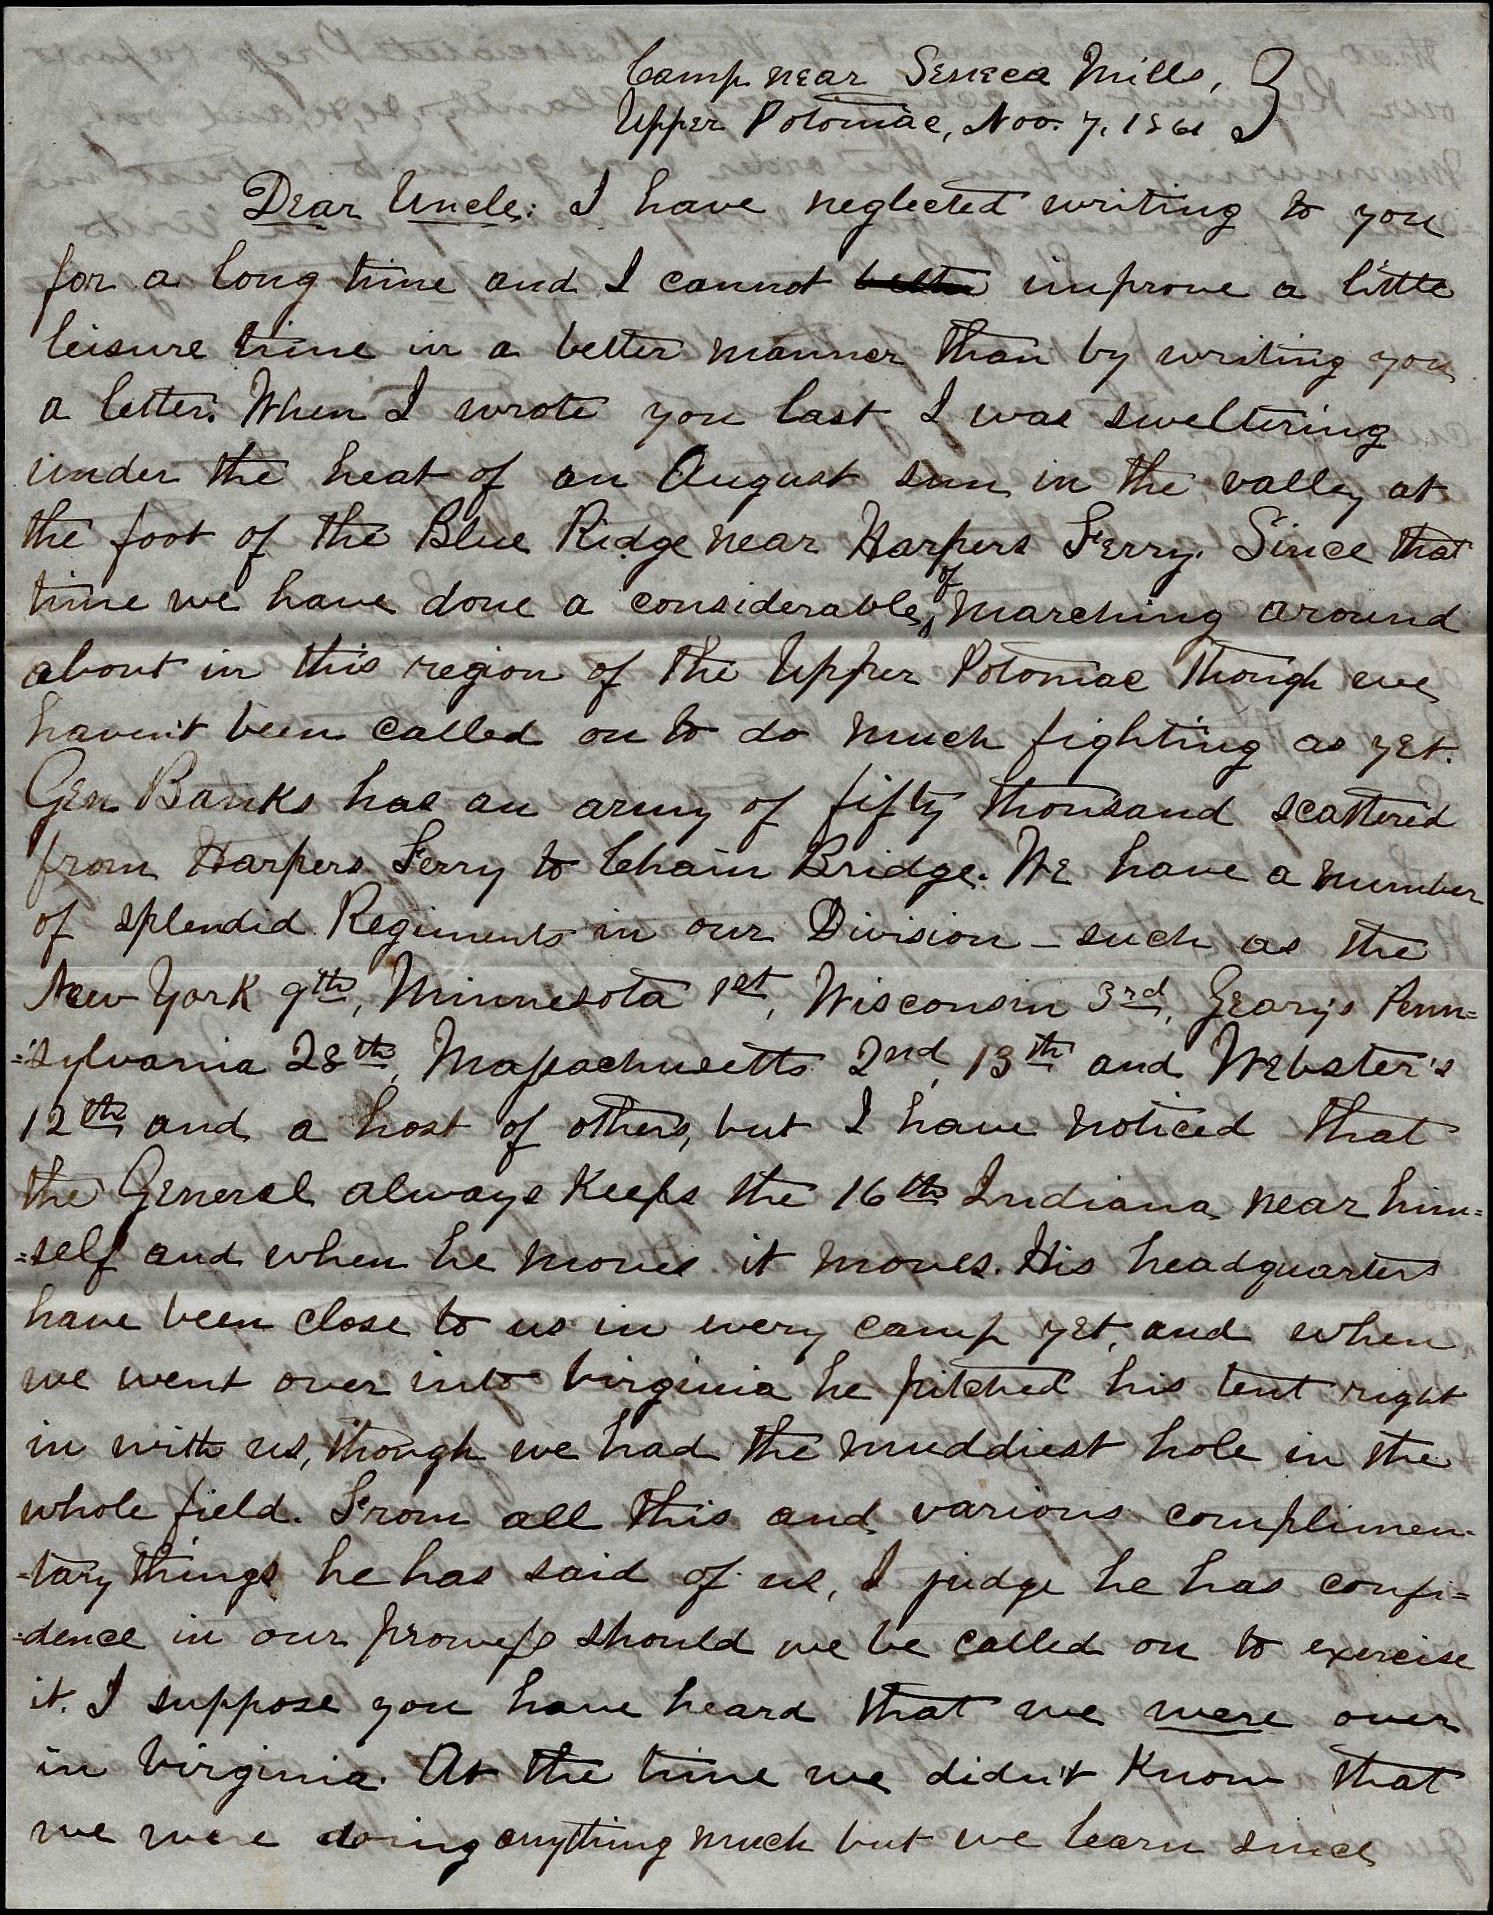 Camp near Seneca Mills,
Upper Potomac, Nov. 7, 1861
Dear Uncle: I have neglected writing to you
for a long time and I cannot better improve a little
leisure time in a better manner than by writing you
a letter. When I wrote you last I was sweltering
under the heat of an August sun in the valley at
the foot of the Blue Ridge near Harpers Ferry. Since that
time we have done a considerable of marching around
about in this region of the Upper Potomac though we
haven't been called on to do much fighting as yet.
Gen Banks has an army of fifty thousand scattered
from Harpers Ferry to Chain Bridge. We have a number
of splendid Regiments in our Division - such as the
New York 9th, Minnesota 1st, Wisconsin 3rd, Geary's Penn=
=sylvania 28th, Massachusetts 2nd, 13th and Webster's
12th and a host of others, but I have noticed that
the General always keeps the 16th Indiana near him=
=self and when he moves it moves. His headquarters
have been close to us in every camp yet, and when
we went over into Virginia he pitched his tent right
in with us, though we had the muddiest hole in the
whole field. From all this and various complimen-
-tary things he has said of us, I judge he has confi=
=dence in our prowess should we be called on to exercise
it. I suppose you have heard that we were over
in Virginia. At the time we didn't know that
we were doing anything much but we learn since